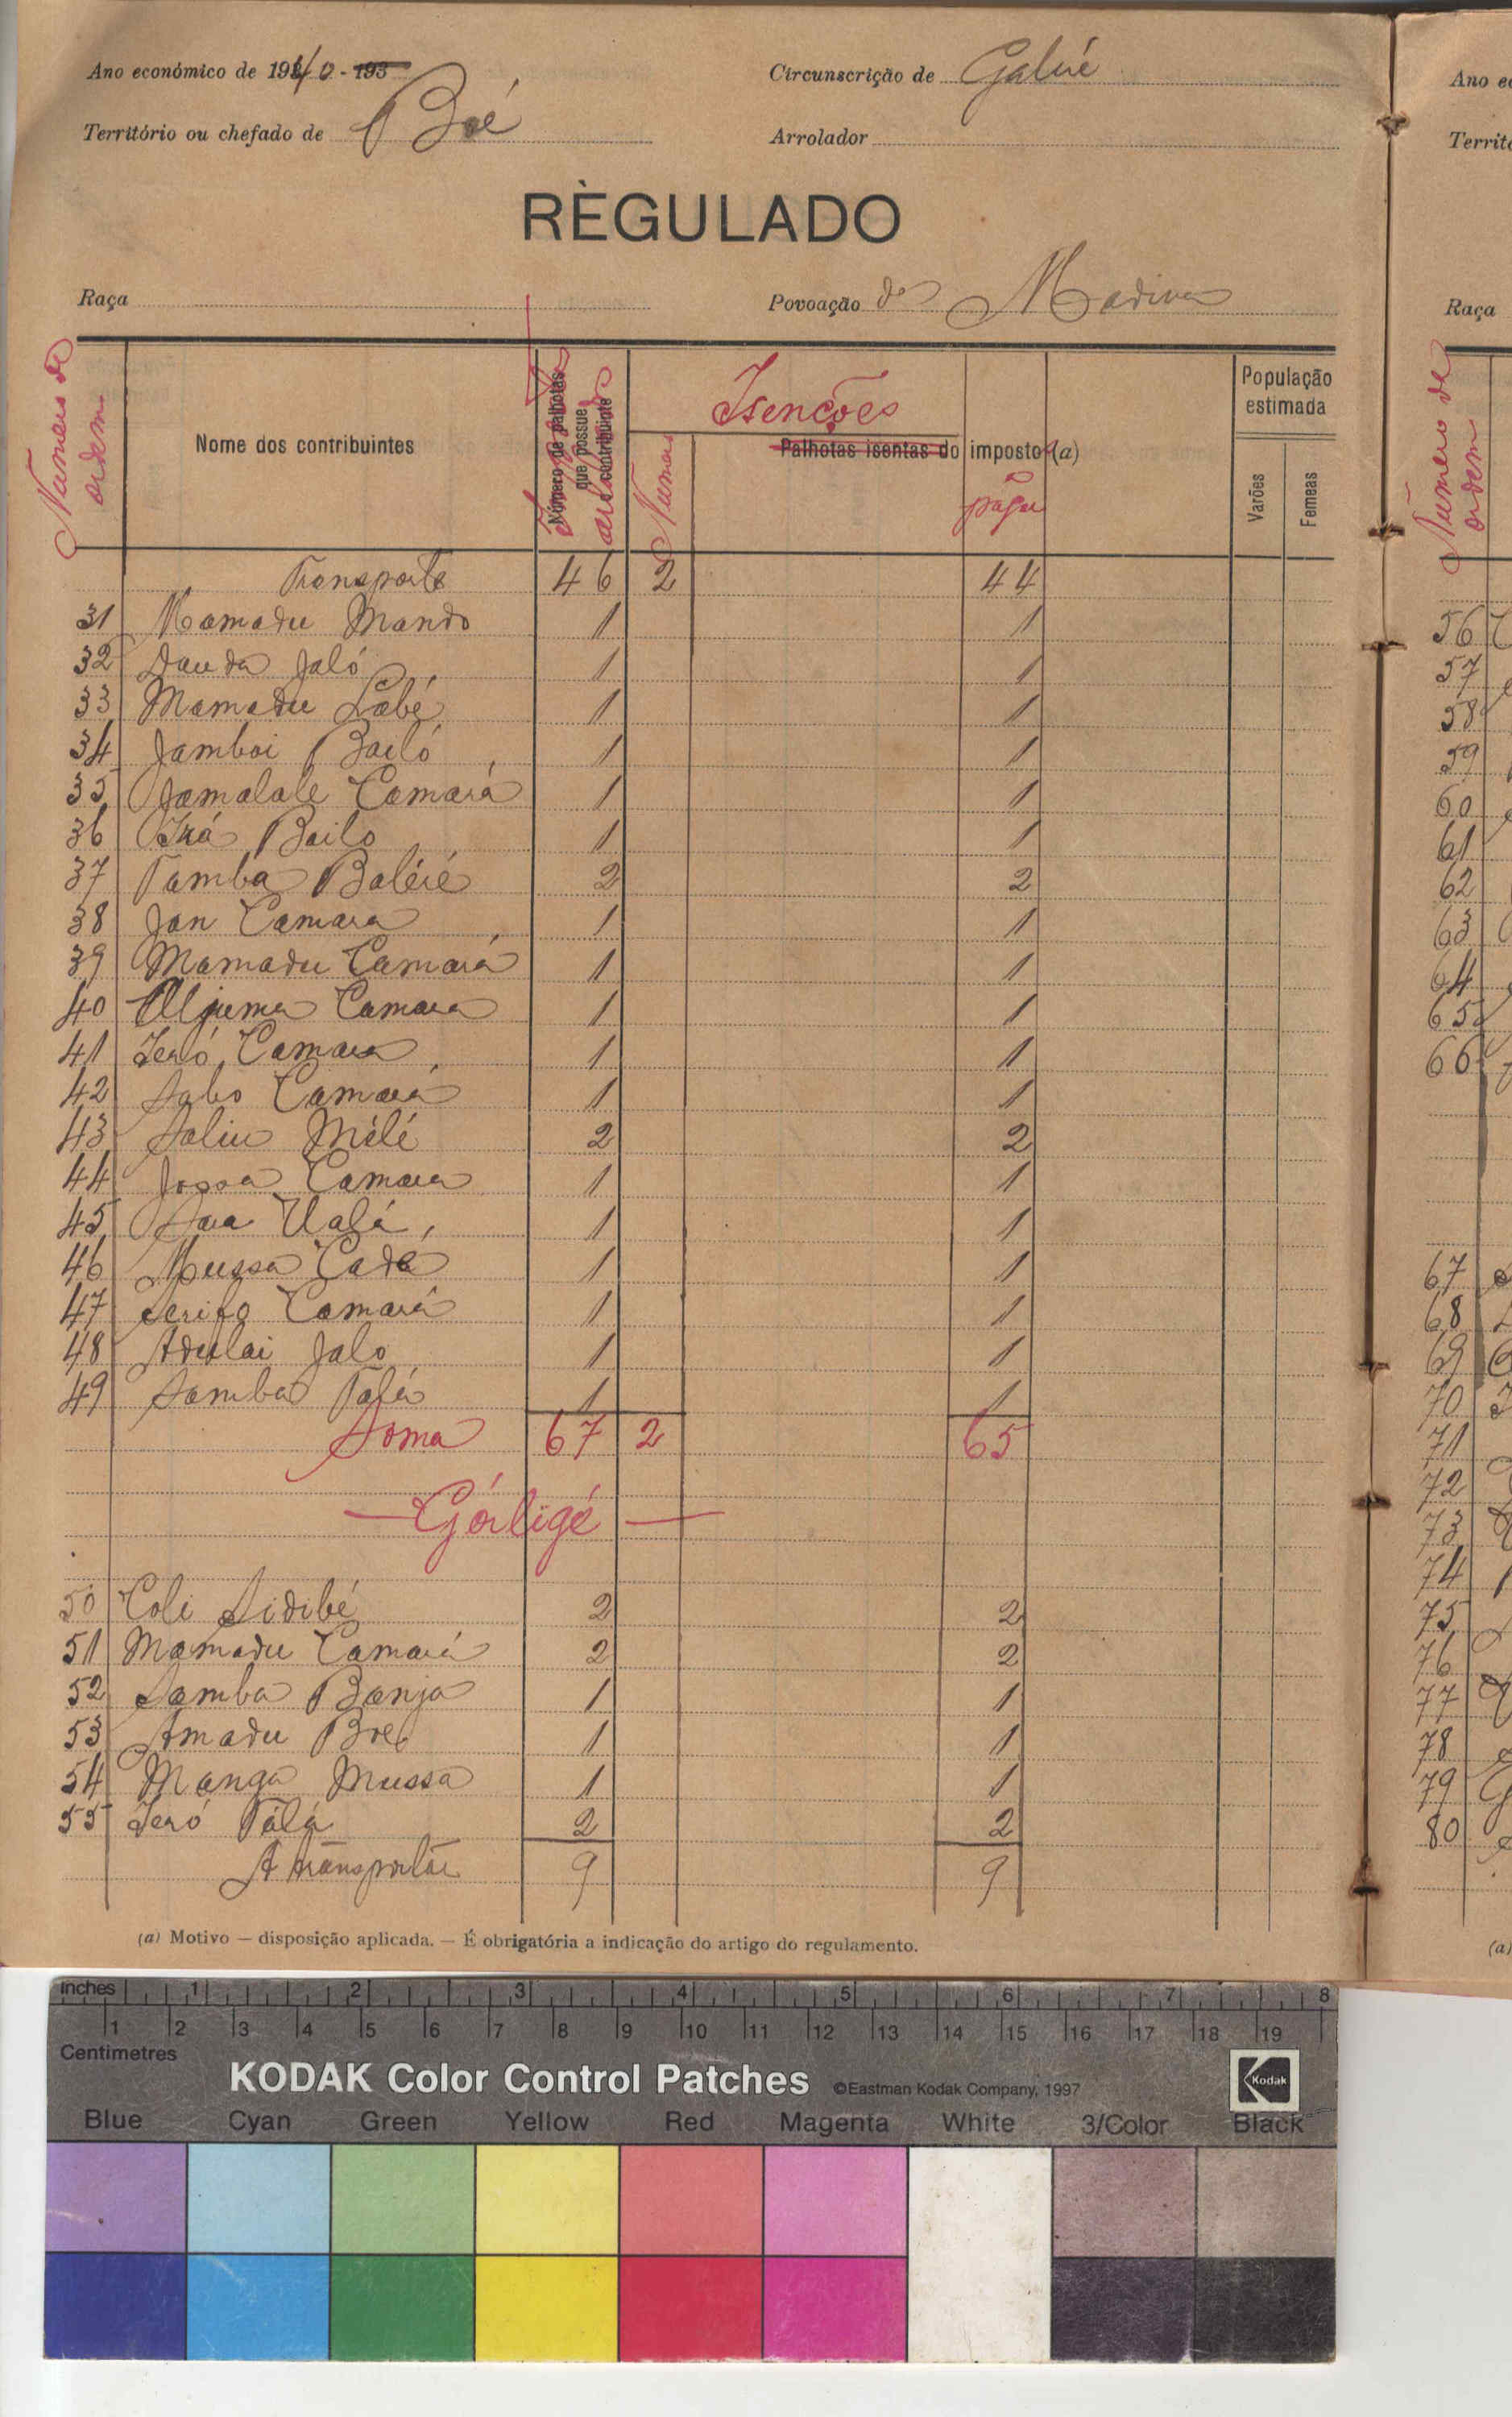 Ano económico de 1940 - 193
Circunscrição de Gabú
Território ou chefado de Boé
Arrolador
RÈGULADO
Raça
Povoação de Madina
Numero de ordem
Nome dos contribuintes
Número de palhotas que possue o contribuinte
Isenções
Numero
Palhotas isentas do imposto (a)
pagar
População estimada
Varões
Femeas
Transporte 46 2 44
31 Mamadu Mando 1 1
32 Dauda Jaló 1 1
33 Mamadu Labé 1 1
34 Jamboi Bailó 1 1
35 Jamalale Camará 1 1
36 Bailo 1 1
37 Tamba 2 2
38 Jan Camara 1 1
39 Mamadu Camará 1 1
40 Aljuma Camara 1 1
41 Camara 1 1
42 Sabo Camará 1 1
43 Saliu Mélé 2 2
44 Jossa Camara 1 1
45 1 1
46 Mussa Cadé 1 1
47 Serifo Camará 1 1
48 Adulai Jalo 1 1
49 Samba 1 1
Soma 67 2 65
— Górligé —
50 Coli Sidibé 2 2
51 Mamadu Camará 2 2
52 Samba Banja 1 1
53 Amadu Boé 1 1
54 Manga Mussa 1 1
55 2 2
A transportar 9 9
(a) Motivo — disposição aplicada. — É obrigatória a indicação do artigo do regulamento.
Ano e
Territ
Raça
Número de ordem
56
57
58
59
60
61
62
63
64
65
66
67
68
69
70
71
72
73
74
75
76
77
78
79
80
(a)
inches 1 2 3 4 5 6 7 8
1 2 3 4 5 6 7 8 9 10 11 12 13 14 15 16 17 18 19
Centimetres
KODAK Color Control Patches ©Eastman Kodak Company, 1997 Kodak
Blue Cyan Green Yellow Red Magenta White 3/Color Black